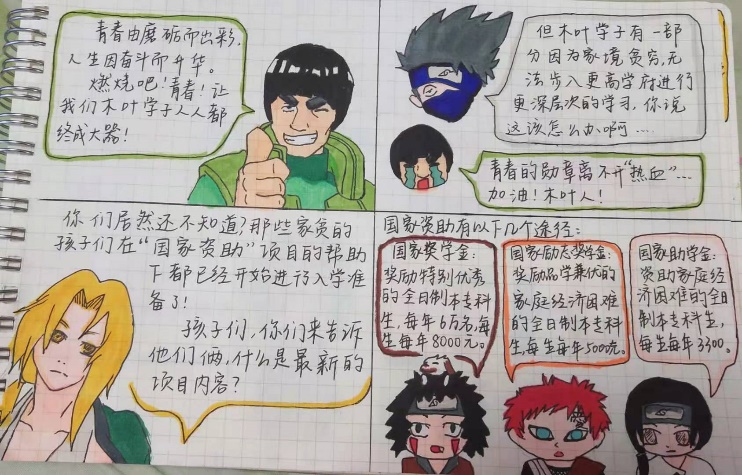 青春由磨砺而出彩，
人生因奋斗而升华。
燃烧吧！青春！让
我们木叶学子人人都
终成大器！
但木叶学子有一部
分因为家境贫穷，无
法步入更高学府进行
更深层次的学习，你说
这该怎么办啊....
青春的勋章离不开“热血”...
加油！木叶人！
你们居然还不知道？那些家贫的
孩子们在“国家资助”项目的帮助
下都已经开始进行入学准
备了！
孩子们，你们来告诉
他们俩，什么是最新的
项目内容？
国家资助有以下几个途径：
国家奖学金：
奖励特别优秀
的全日制本专科
生，每年6万名，每
生每年8000元。
国家励志奖学金：
奖励品学兼优的
家庭经济困难
的全日制本专科
生，每生每年5000元。
国家助学金：
资助家庭经
济困难的全日
制本专科生，
每生每年3300。